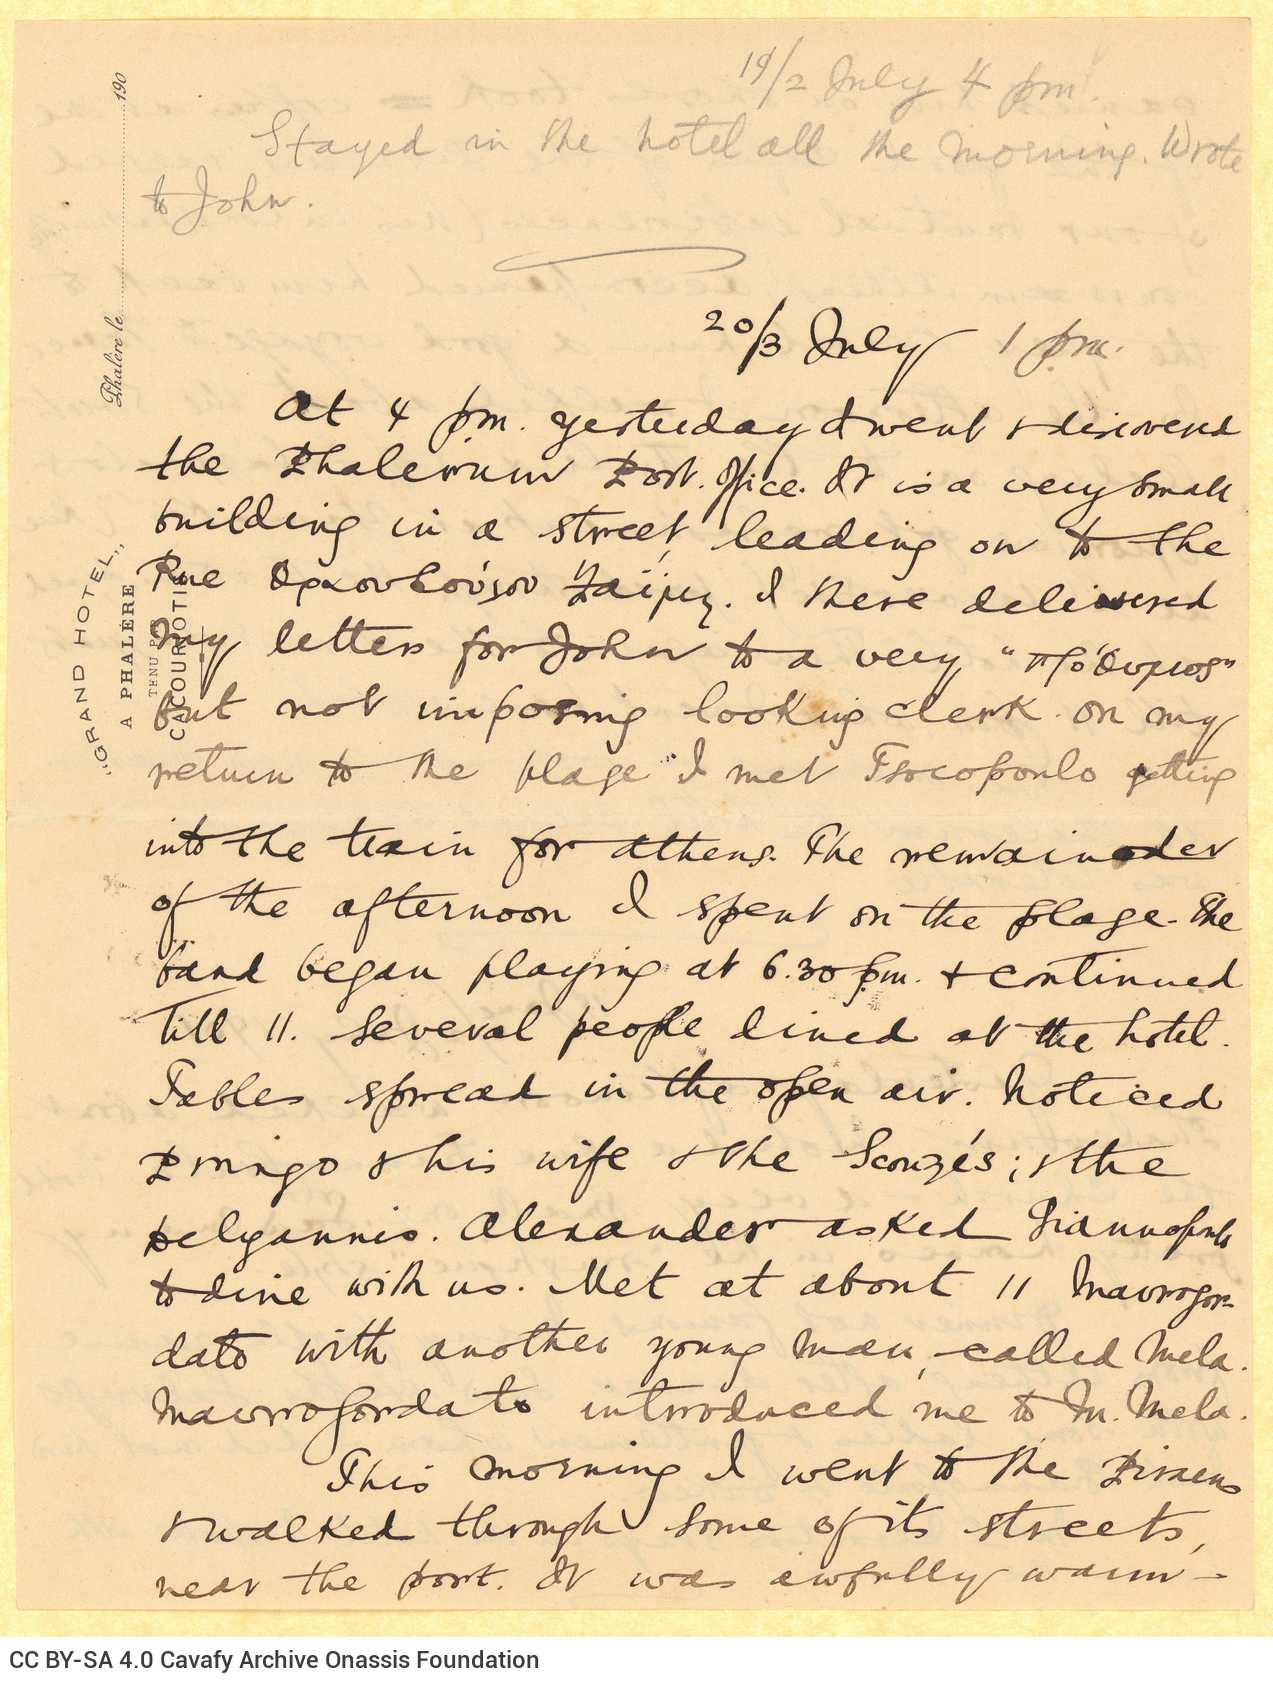 19/2 July 4 pm.
Stayed in the hotel all the morning. Wrote
to John.
20/3 July 1 pm.
At 4 pm. yesterday I went & discovered
the Phalerum Post. Office. It is a very small
building in a street, leading on to the
Rue Θρασυβούλου Ζαΐμη. I there delivered
my letters for John to a very "πρόθυμος"
but not imposing looking clerk. On my
return to the plage I met Tsocopoulo getting
into the train for Athens. The remainder
of the afternoon I spent on the plage. The
band began playing at 6.30 pm. & continued
till 11. Several people dined at the hotel.
Tables spread in the open air. Noticed
& his wife & the Scouzés; & the
Delyannis. Alexander asked Giannopoulo
to dine with us. Met at about 11 Mavrogor-
dato with another young man, called Mela.
Mavrogordato introduced me to M. Mela.
This morning I went to the Piraeus
& walked through some of its streets,
near the port. It was awfully warm –
Phalère le 190
„GRAND HOTEL„
A PHALÈRE
TENU PAR
CACOURIOTIS
CC BY-SA 4.0 Cavafy Archive Onassis Foundation